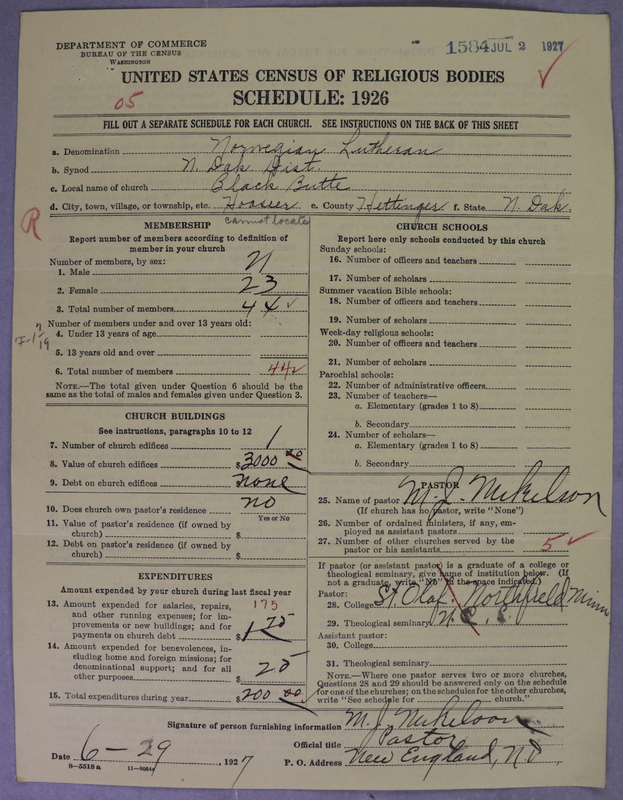 DEPARTMENT OF COMMERCE
BUREAU OF THE CENSUS
WASHINGTON
1584 JUL 2 1927
UNITED STATES CENSUS OF RELIGIOUS BODIES
SCHEDULE: 1926
05
FILL OUT A SEPARATE SCHEDULE FOR EACH CHURCH. SEE INSTRUCTIONS ON THE BACK OF THIS SHEET
a. Denomination Norwegian Lutheran
b. Synod N. Dak Dist.
c. Local name of church Black Butte
d. City, town, village, or township, etc. Hoosier e. County Hettinger f. State N. Dak.
cannot locate
R
MEMBERSHIP
Report number of members according to definition of
member in your church
Number of members, by sex:
1. Male 21
2. Female 23
3. Total number of members 44 ✓
Number of members under and over 13 years old:
4. Under 13 years of age
5. 13 years old and over
6. Total number of members 44
NOTE.—The total given under Question 6 should be
same as the total of males and females given under Question 3.
CHURCH BUILDINGS
See instructions, paragraphs 10 to 12
7. Number of church edifices 1
8. Value of church edifices $ 3000 00
9. Debt on church edifices $ none
10. Does church own pastor's residence no
Yes or No
11. Value of pastor's residence (if owned by
church) $
12. Debt on pastor's residence (if owned by
church) $
EXPENDITURES
Amount expended by your church during last fiscal year
13. Amount expended for salaries, repairs,
and other running expenses; for im-
provements or new buildings; and for
payments on church debt $ 175
14. Amount expended for benevolences, in-
cluding home and foreign missions; for
denominational support; and for all
other purposes 25
15. Total expenditures during year $ 200 00
CHURCH SCHOOLS
Report here only schools conducted by this church
Sunday schools:
16. Number of officers and teachers
17. Number of scholars
Summer vacation Bible schools:
18. Number of officers and teachers
19. Number of scholars
Week-day religious schools:
20. Number of officers and teachers
21. Number of scholars
Parochial schools:
22. Number of administrative officers
23. Number of teachers—
a. Elementary (grades 1 to 8)
b. Secondary
24. Number of scholars—
a. Elementary (grades 1 to 8)
b. Secondary
PASTOR
25. Name of pastor M. J. Mikelson
(If church has no pastor, write "None")
26. Number of ordained ministers, if any, em-
ployed as assistant pastors
27. Number of other churches served by the
pastor or his assistants 5 ✓
If pastor (or assistant pastor) is a graduate of a college or
theological seminary, give name of institution below. (If
not a graduate, write "No" in the space indicated.)
Pastor:
28. College St. Olaf. Northfield Minn
29. Theological seminary
Assistant pastor:
30. College
31. Theological seminary
NOTE.—Where one pastor serves two or more churches,
Questions 28 and 29 should be answered only on the schedule
for one of the churches; on the schedules for the other churches,
write "See schedule for church."
Signature of person furnishing information M. J. Mikelson
Official title Pastor
Date 6-29, 1927 P. O. Address New England, N D.
8—5518a